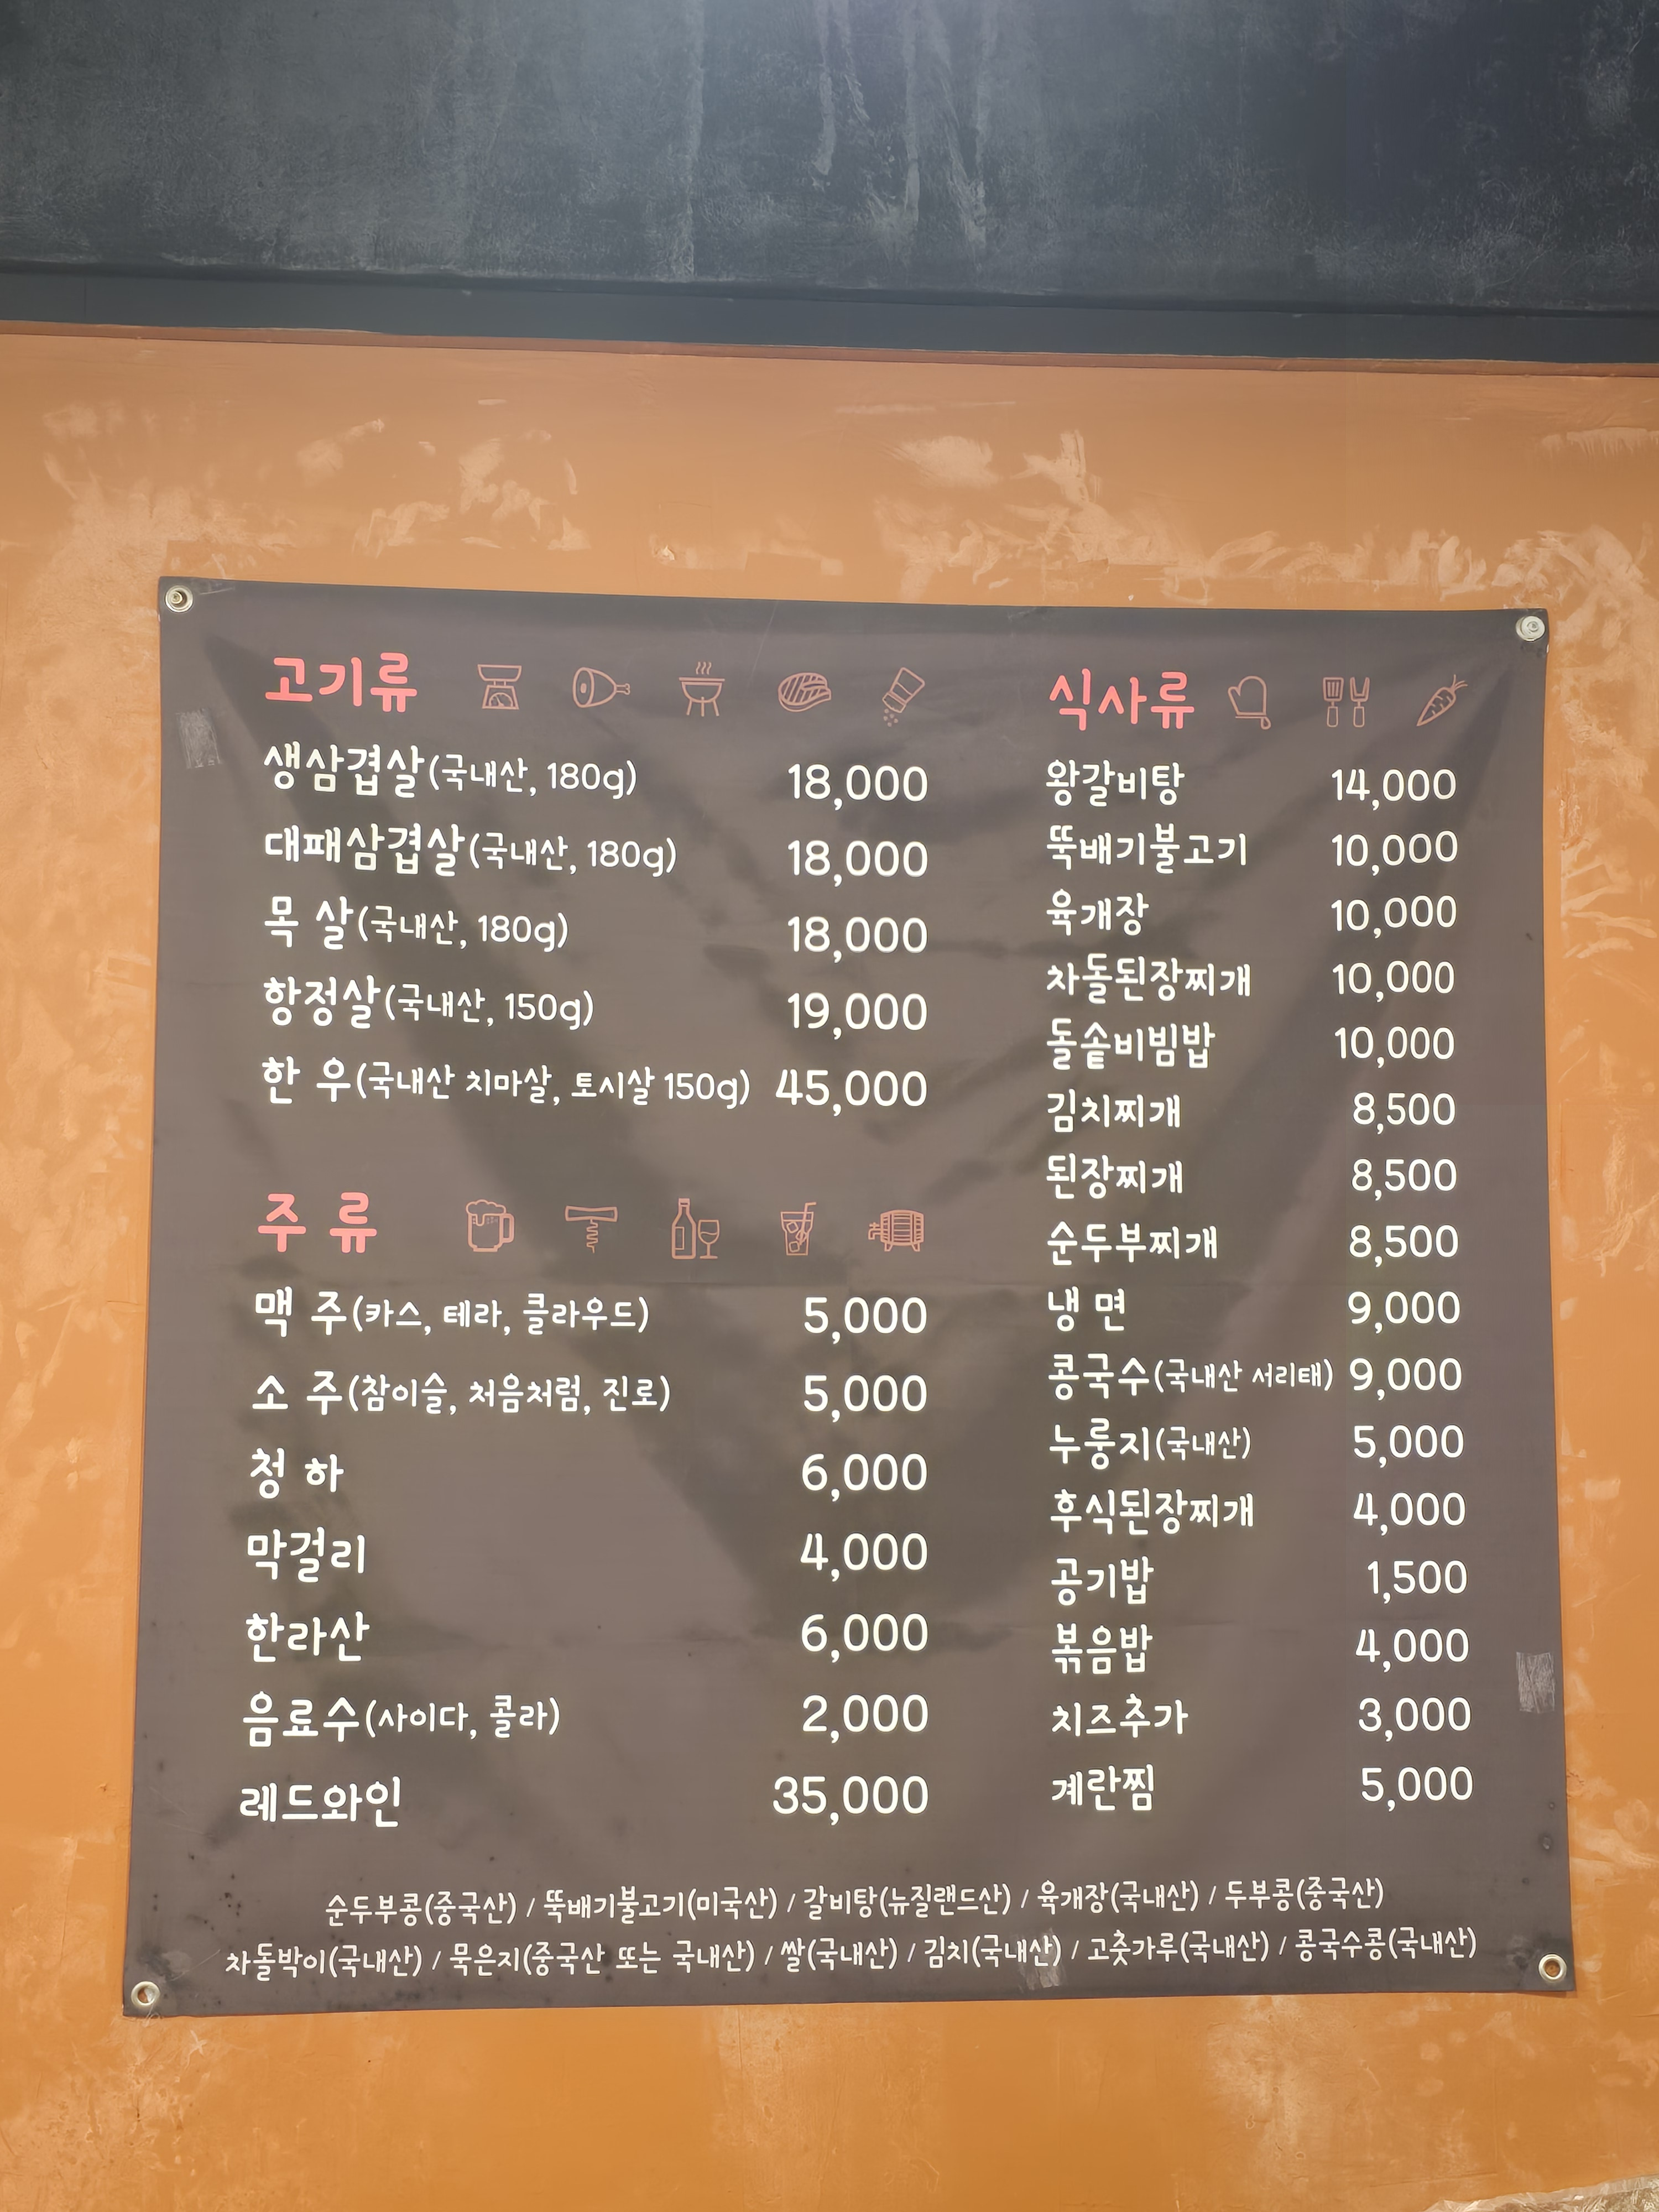 고기류
생삼겹살(국내산, 180g) 18,000
대패삼겹살(국내산, 180g) 18,000
목 살(국내산, 180g) 18,000
항정살(국내산, 150g) 19,000
한 우(국내산 치마살, 토시살 150g) 45,000
주 류
맥 주(카스, 테라, 클라우드) 5,000
소 주(참이슬, 처음처럼, 진로) 5,000
청 하 6,000
막걸리 4,000
한라산 6,000
음료수(사이다, 콜라) 2,000
레드와인 35,000
식사류
왕갈비탕 14,000
뚝배기불고기 10,000
육개장 10,000
차돌된장찌개 10,000
돌솥비빔밥 10,000
김치찌개 8,500
된장찌개 8,500
순두부찌개 8,500
냉 면 9,000
콩국수(국내산 서리태) 9,000
누룽지(국내산) 5,000
후식된장찌개 4,000
공기밥 1,500
볶음밥 4,000
치즈추가 3,000
계란찜 5,000
순두부콩(중국산) / 뚝배기불고기(미국산) / 갈비탕(뉴질랜드산) / 육개장(국내산) / 두부콩(중국산)
차돌박이(국내산) / 묵은지(중국산 또는 국내산) / 쌀(국내산) / 김치(국내산) / 고춧가루(국내산) / 콩국수콩(국내산)